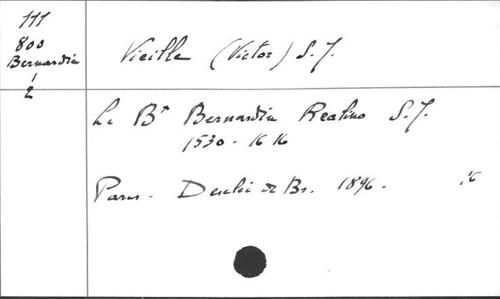 111
800
Bernardin
1
2
Vieille (Victor) S. J.
Le Bx Bernardin Realino S. J.
1530 - 1616
Paris - Desclée de Br. 1896.
16